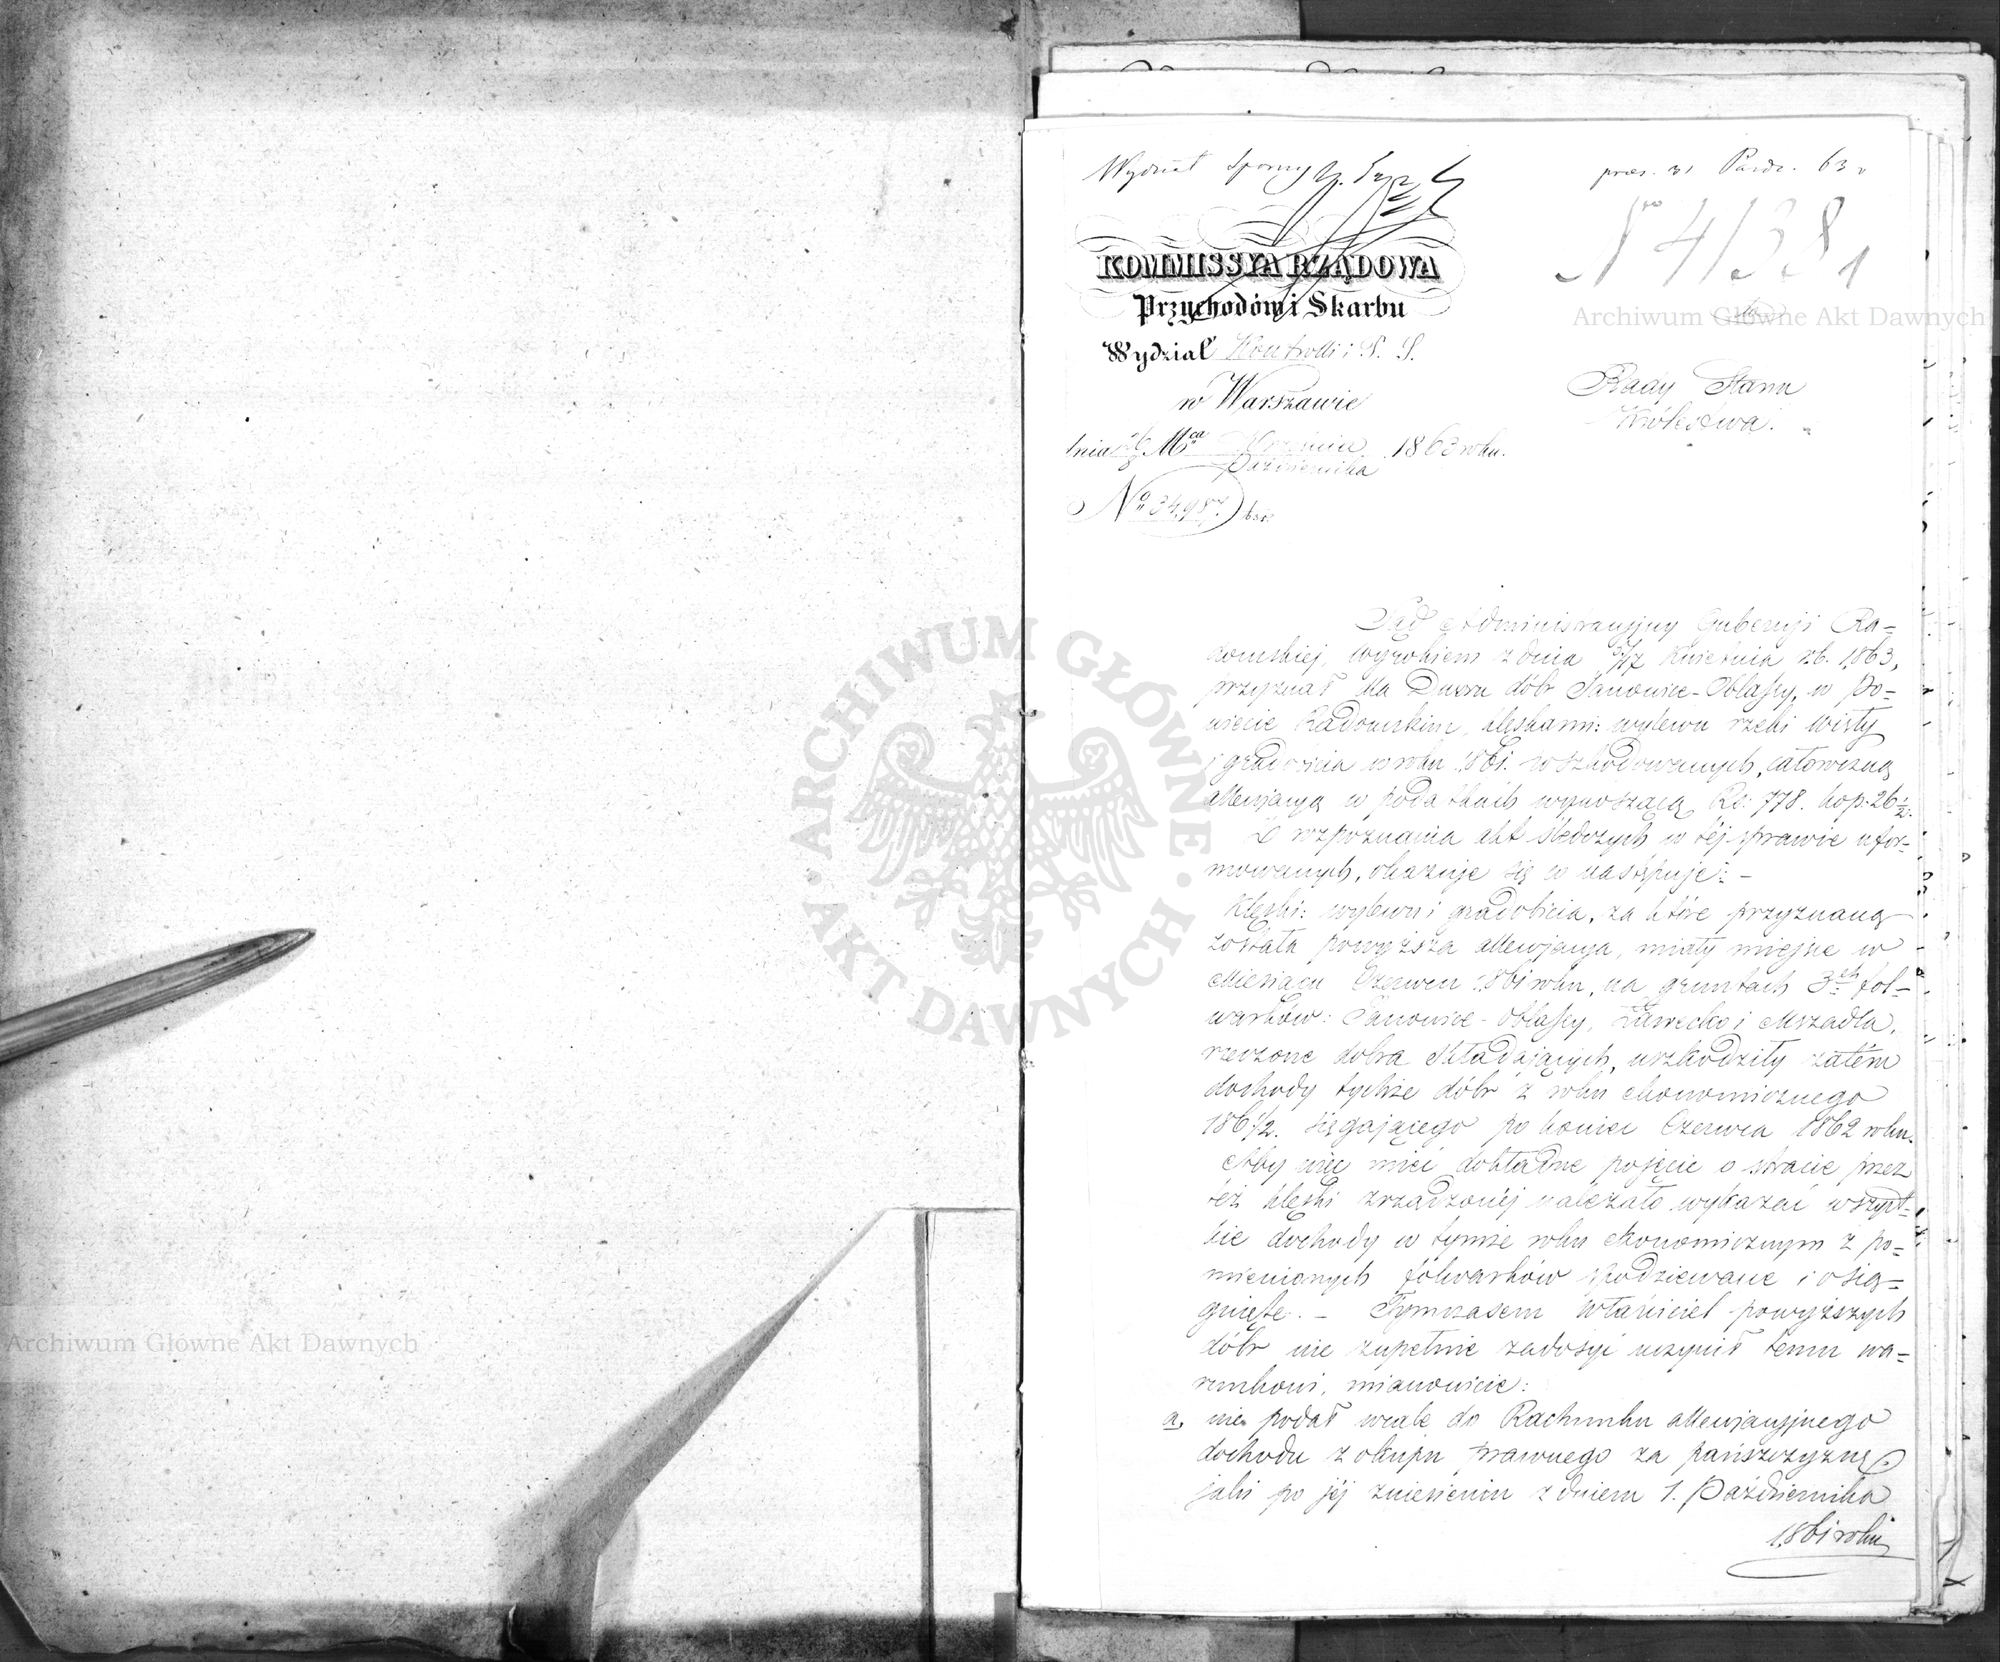 Wydział Sporny
præs. 31 Paźdz. 63 r
Nro 4138
1
KOMMISSYA RZĄDOWA
Przychodów i Skarbu
Wydział Kontrolli i S. S.
w Warszawie
dnia Mca Września Października 1863 roku.
No 34,987.
Rady Stanu
Królestwa.
Sąd Administracyjny Gubernji Ra-
domskiej, wyrokiem z dnia 5/17 Kwietnia r.b. 1863,
przyznał dla Dworu dóbr Janowice-Oblassy, w Po-
wiecie Radomskim, klęskami: wylewu rzeki Wisły
i gradobicia w roku 1861. poszkodowanych, całoroczną
allewjacyą w podatkach wynoszącą Rs: 778. kop: 26½.
Z rozpoznania akt śledczych w téj sprawie ufor-
mowanych, okazuje się co następuje: -
Klęski: wylewu i gradobicia, za które przyznaną
została powyższa allewjacya, miały miejsce w
Miesiącu Czerwcu 1861 roku, na gruntach 3ch fol-
warków: Janowice-Oblassy, Ławecko i Mszadla,
rzeczone dobra składających, uszkodziły zatém
dochody tychże dóbr z roku ekonomicznego
1861/2. sięgającego po koniec Czerwca 1862 roku.
Aby więc mieć dokładne pojęcie o stracie przez
też klęski zrządzonéj należało wykazać wszyst-
kie dochody w tymże roku ekonomicznym z po-
mienionych folwarków spodziewane i osią-
gnięte. - Tymczasem właściciel powyższych
dóbr nie zupełnie zadosyć uczynił temu wa-
runkowi, mianowicie:
a, nie podał wcale do Rachunku allewjacyjnego
dochodu z okupu prawnego za pańszczyznę,
jaki po jéj zniesieniu z dniem 1. Października
1861 roku
Archiwum Główne Akt Dawnych
Archiwum Główne Akt Dawnych
ARCHIWUM GŁÓWNE · AKT DAWNYCH ·